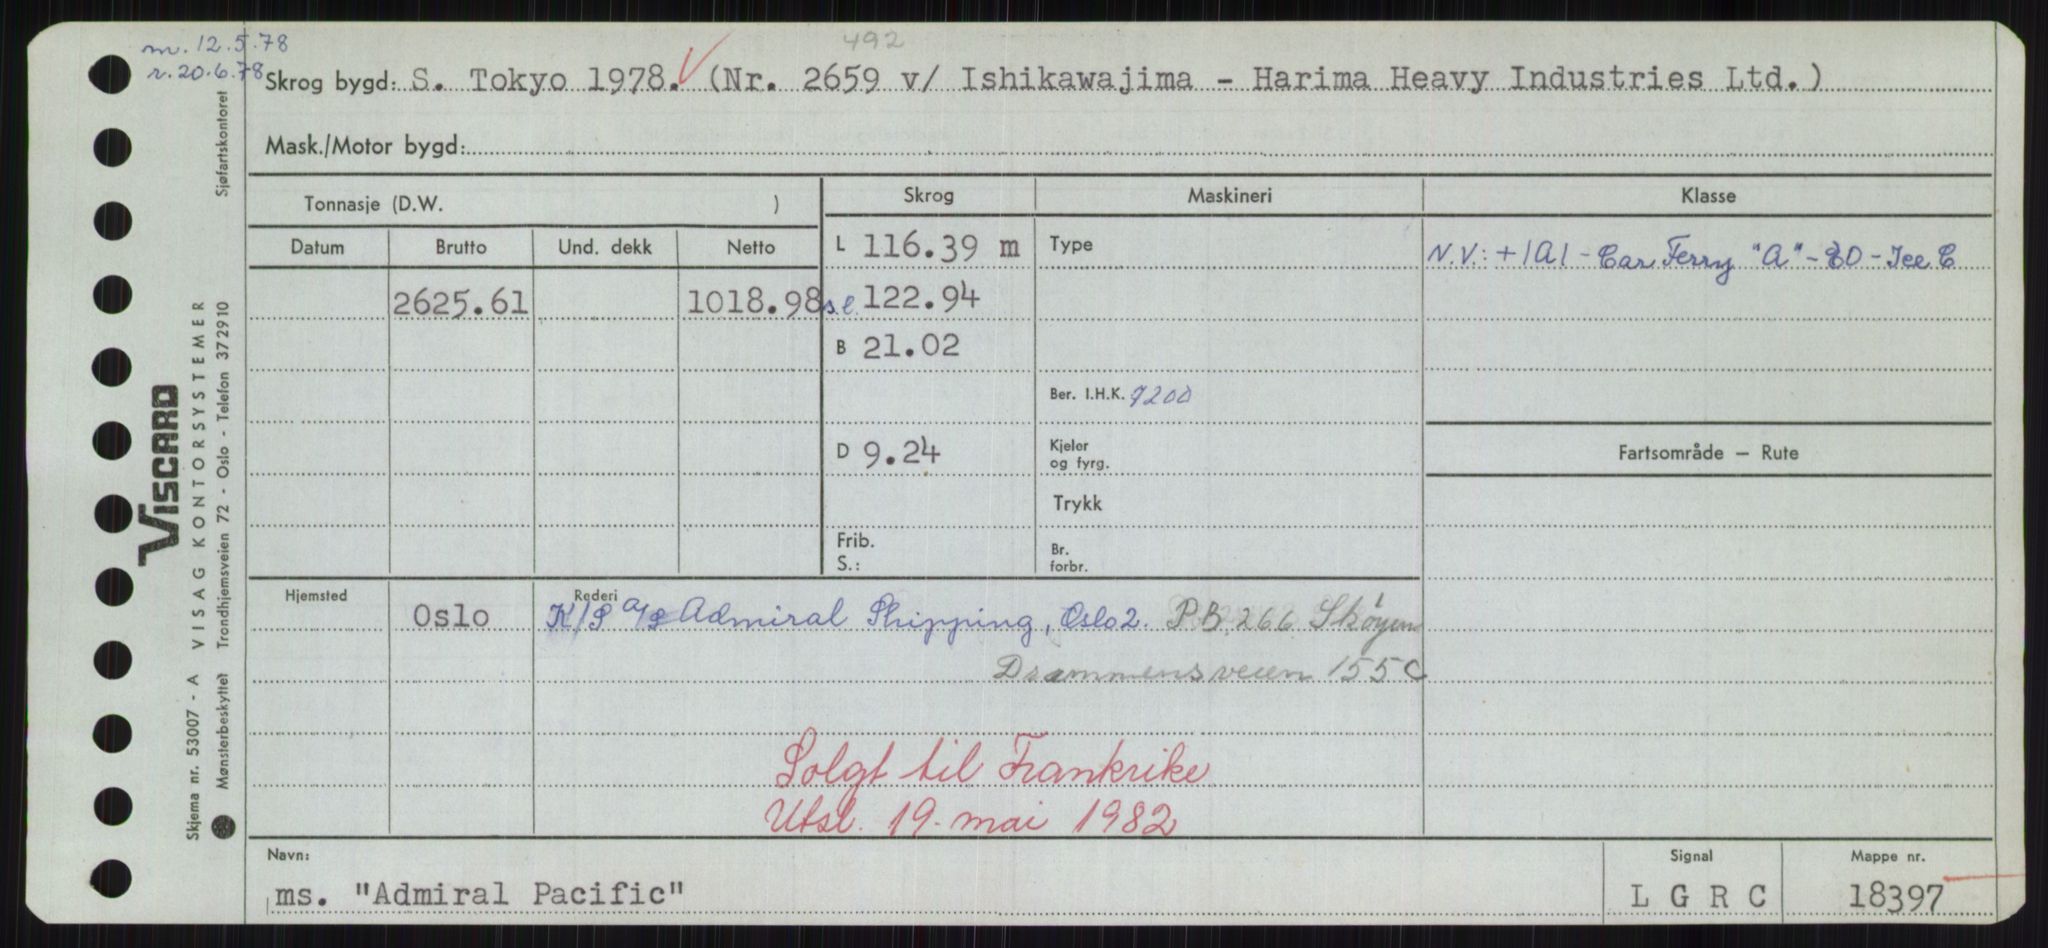 m. 12.5.78
r. 20.6.78
492
Skrog bygd: S. Tokyo 1978. (Nr. 2659 v/ Ishikawajima - Harima Heavy Industries Ltd.)
Mask./Motor bygd:
Tonnasje (D.W. )
Skrog
Maskineri
Klasse
Datum Brutto Und. dekk Netto
2625.61 1018.98
L 116.39 m
s.l. 122.94
B 21.02
D 9.24
Frib.
S.:
Type
Ber. I.H.K. 7200
Kjeler
og fyrg.
Trykk
Br.
forbr.
N.V.: +1A1 - Car Ferry "A" - EO - Ice C
Fartsområde — Rute
Hjemsted
Oslo
Rederi
K/S A/S Admiral Shipping, Oslo 2. P.B. 266 Skøyen
Drammensveien 155 C
Solgt til Frankrike
Utsl. 19. mai 1982
Navn:
ms. "Admiral Pacific"
Signal
L G R C
Mappe nr.
18397
VISCARD
Skjema nr. 53007 - A VISAG KONTORSYSTEMER
Mønsterbeskyttet Trondhjemsveien 72 - Oslo - Telefon 372910 Sjøfartskontoret